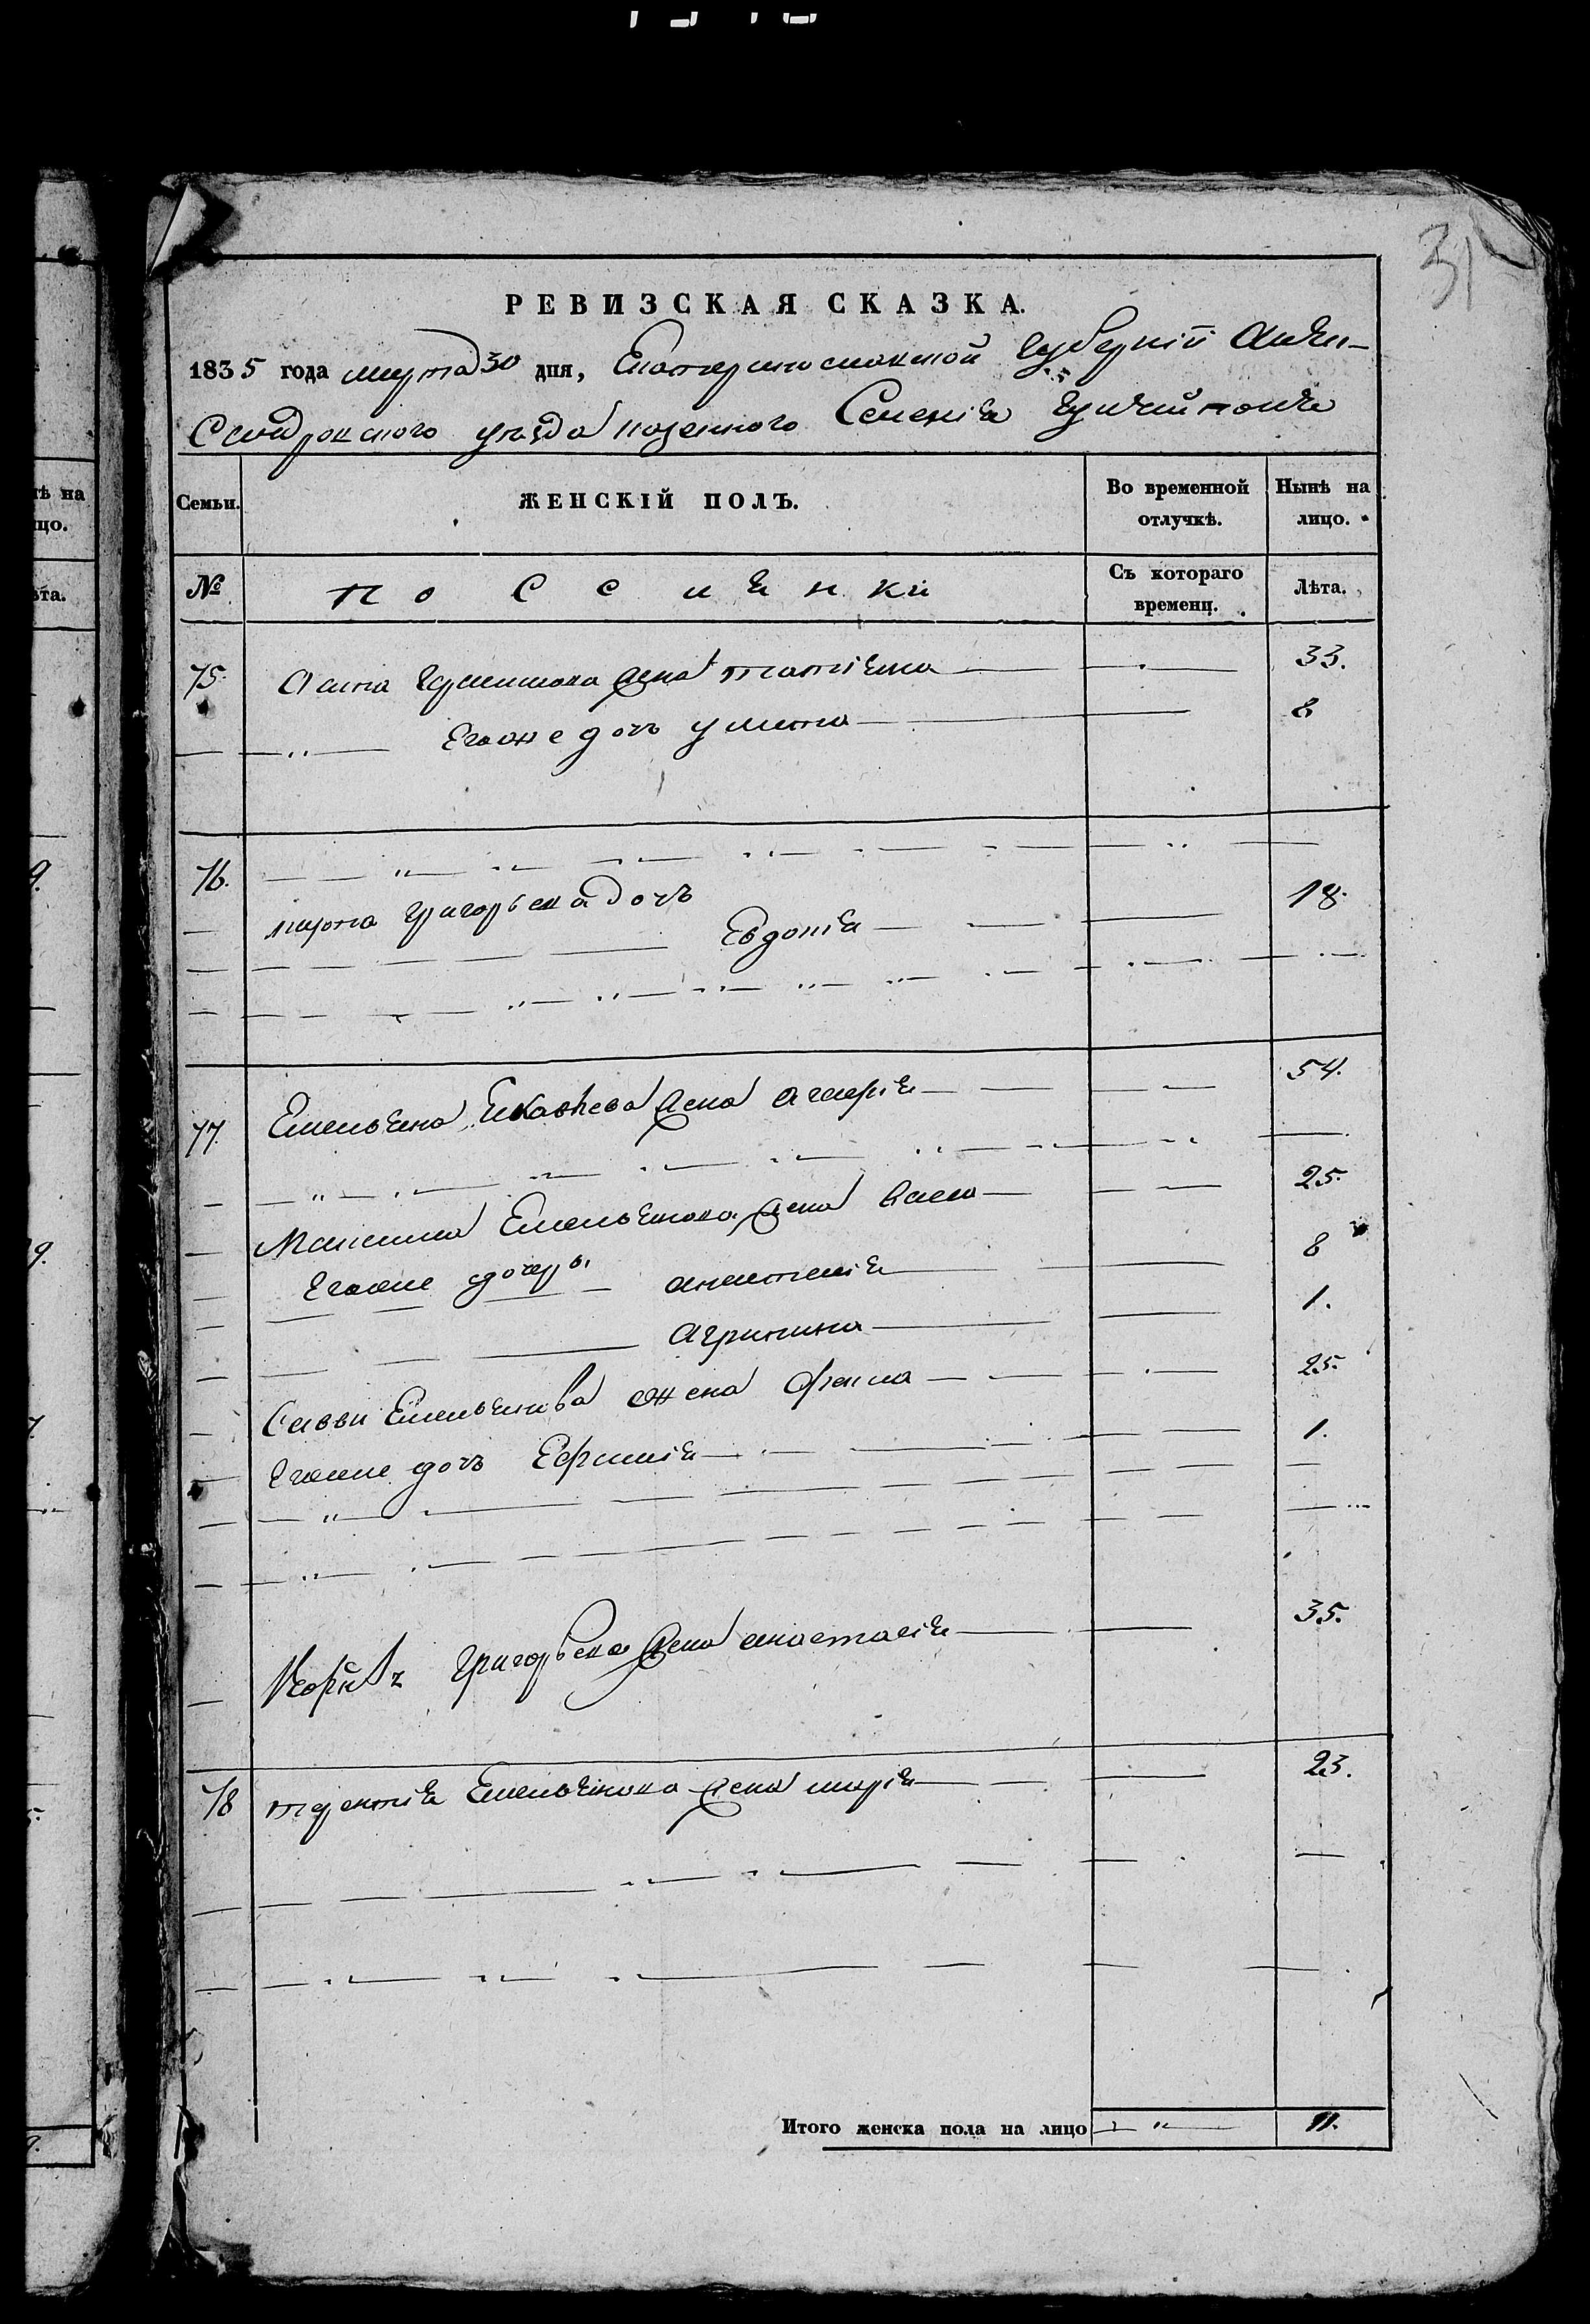 31
РЕВИЗСКАЯ СКАЗКА.
1835 года марта 30 дня, Екатеринославской Губернiи Алек-
сандровского уезда казенного Селенiя
Семьи. ЖЕНСКIЙ ПОЛЪ. Во временной отлучкѣ. Нынѣ на лицо.
№ Съ котораго времени. Лѣта.
75. жена татiяна 33.
Егоже дочь улита 8
76.
марфа Григорьева дочь
Евдокiя 18.
77. Емельяна жена 54.
Максима Емельянова жена 25.
Егоже дочеры анастасiя 8
агрипина 1.
Саввы Емельянова жена фекла 25.
Егоже дочь 1.
Григорьева жена анастасiя 35.
78 терентiя Емельянова жена марiя 23.
Итого женска пола на лицо 11.